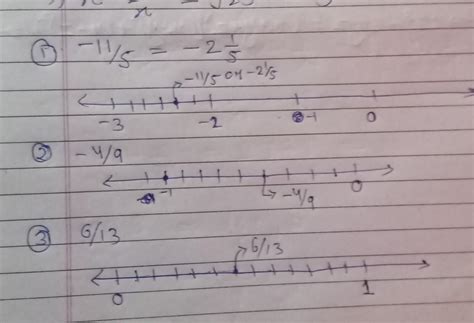 ① -11/5 = -2 1/5
-11/5 or -2 1/5
-3 -2 -1 0
② -4/9
-1 -4/9 0
③ 6/13
6/13
0 1